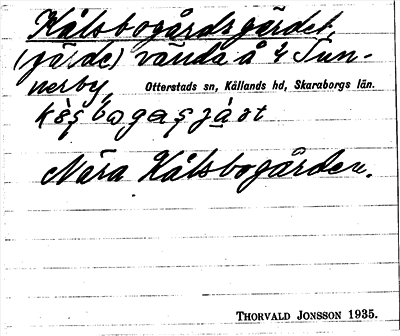 Kålsbogårdsgärdet,
(gärde) vända å 4 Tun-
nerby,
Otterstads sn, Kållands hd, Skaraborgs län.
Nära Kålsbogården.
THORVALD JONSSON 1935.